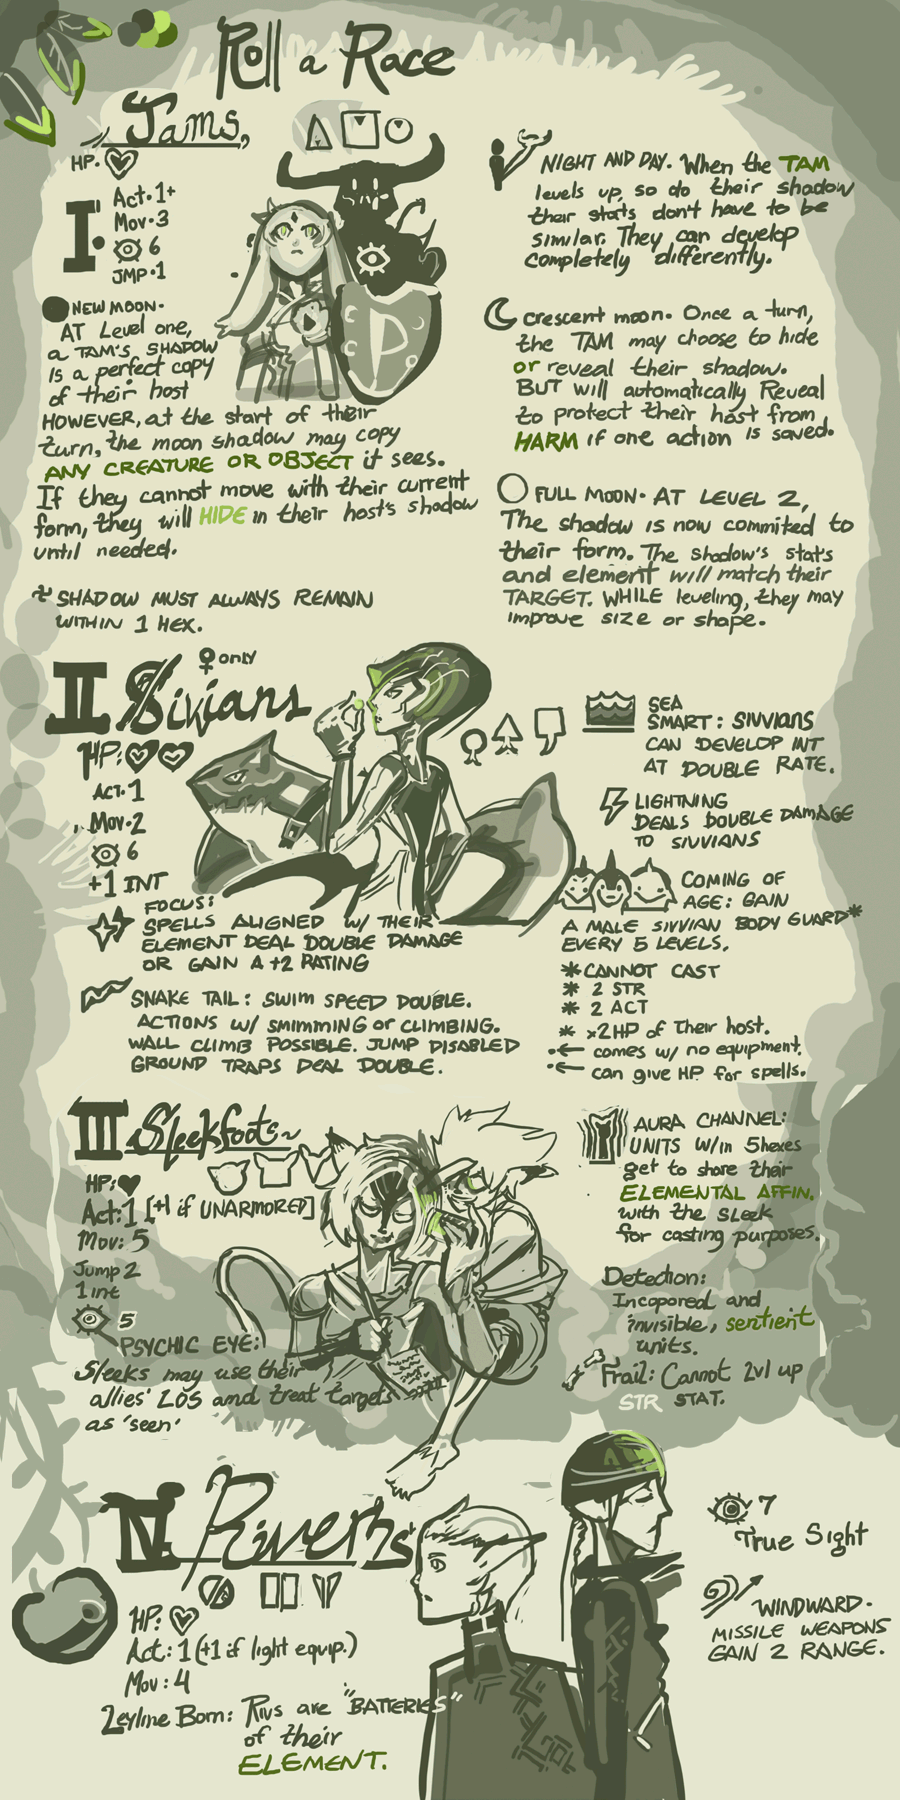 Roll a Race
Tams,
HP.
I.
Act. 1+
Mov. 3
6
JMP. 1
NEW MOON.
AT Level one,
a TAM'S SHADOW
IS a perfect copy
of their host
HOWEVER, at the start of their
turn, the moon shadow may copy
ANY CREATURE OR OBJECT it sees.
If they cannot move with their current
form, they will HIDE in their host's shadow
until needed.
SHADOW MUST ALWAYS REMAIN
WITHIN 1 HEX.
NIGHT AND DAY. When the TAM
levels up, so do their shadow
their stats don't have to be
similar. They can develop
completely differently.
crescent moon. Once a turn,
the TAM may choose to hide
or reveal their shadow.
BUT will automatically Reveal
to protect their host from
HARM if one action is saved.
FULL MOON. AT LEVEL 2,
The shadow is now commited to
their form. The shadow's stats
and element will match their
TARGET. WHILE leveling, they may
improve size or shape.
II Sivians
♀ only
HP:
ACT. 1
Mov. 2
6
+1 INT
FOCUS:
SPELLS ALIGNED W/ THEIR
ELEMENT DEAL DOUBLE DAMAGE
OR GAIN A +2 RATING
SNAKE TAIL: SWIM SPEED DOUBLE.
ACTIONS W/ SMIMMING or CLIMBING.
WALL CLIMB POSSIBLE. JUMP DISABLED
GROUND TRAPS DEAL DOUBLE.
SEA
SMART: SIVVIANS
CAN DEVELOP INT
AT DOUBLE RATE.
LIGHTNING
DEALS DOUBLE DAMAGE
TO SIVVIANS
COMING OF
AGE: GAIN
A MALE SIVVIAN BODY GUARD*
EVERY 5 LEVELS.
* CANNOT CAST
* 2 STR
* 2 ACT
* x2HP of their host.
← comes w/ no equipment.
← can give HP for spells.
III Sleekfoots~
HP:
Act: 1 [+1 if UNARMORED]
Mov: 5
Jump 2
1 int
5
PSYCHIC EYE:
Sleeks may use their
allies' LOS and treat targets
as 'seen'
AURA CHANNEL:
UNITS W/in 5hexes
get to share their
ELEMENTAL AFFIN.
with the SLeek
for casting purposes.
Detection:
Incopored and
invisible, sentient
units.
Frail: Cannot lvl up
STR STAT.
IV Riverns
HP:
Act: 1 (+1 if light equip.)
Mov: 4
Leyline Born: Rivs are "BATTERIES"
of their
ELEMENT.
7
True Sight
WINDWARD.
MISSILE WEAPONS
GAIN 2 RANGE.